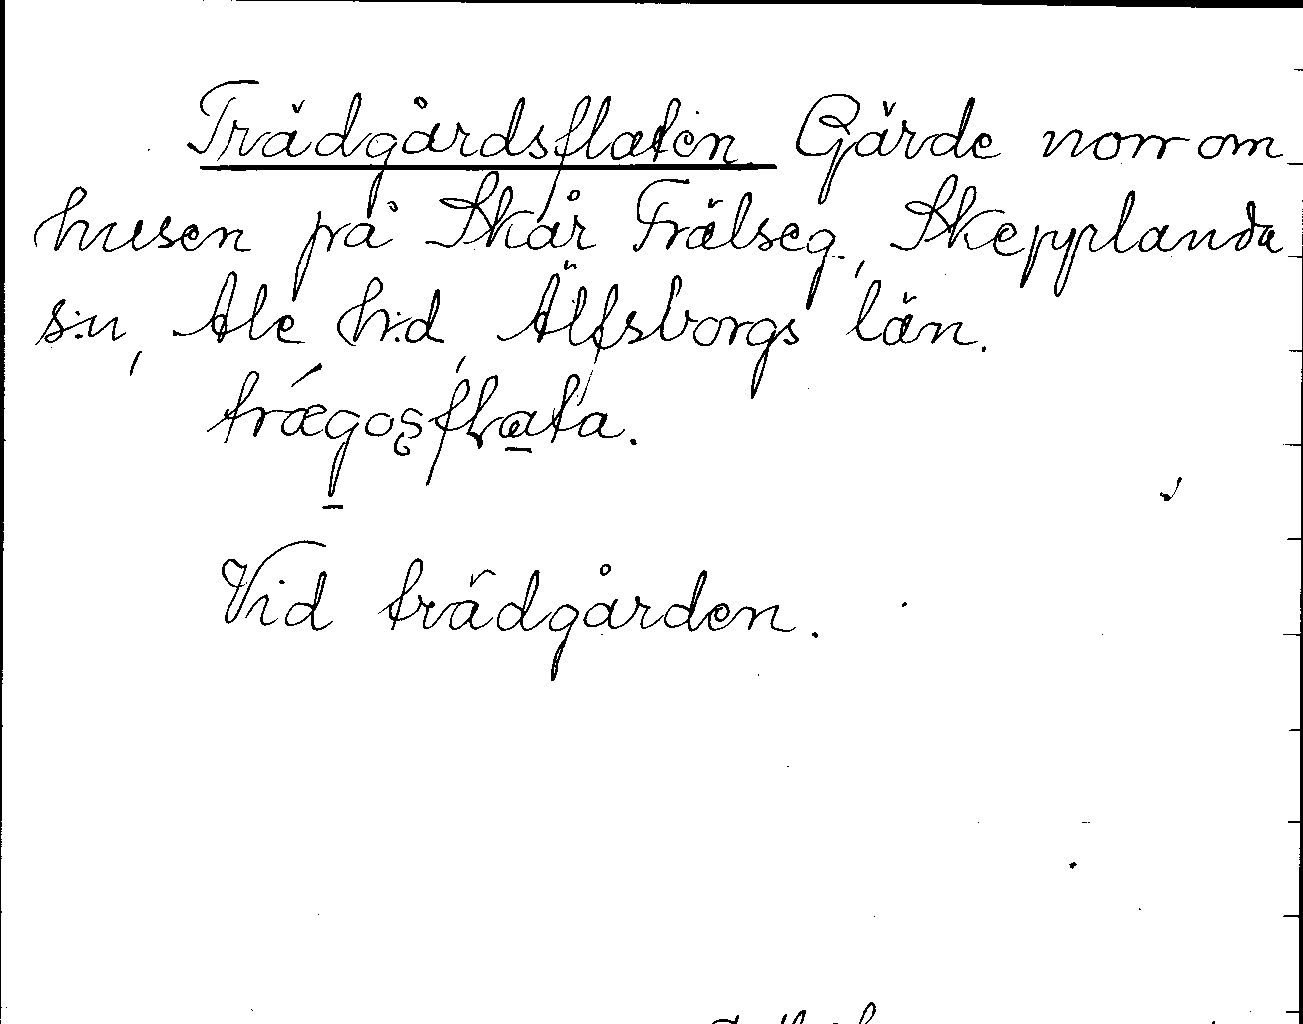 Trädgårdsflaten Gärde norr om
husen på Skår Frälseg., Skepplanda
s:n, Ale h:d, Älfsborgs län.
Vid trädgården.